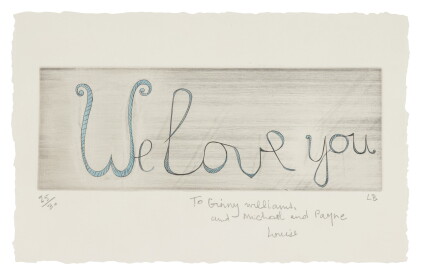 We love you
25/30
LB
To Ginny Williams
and Michael and Payne
Louise